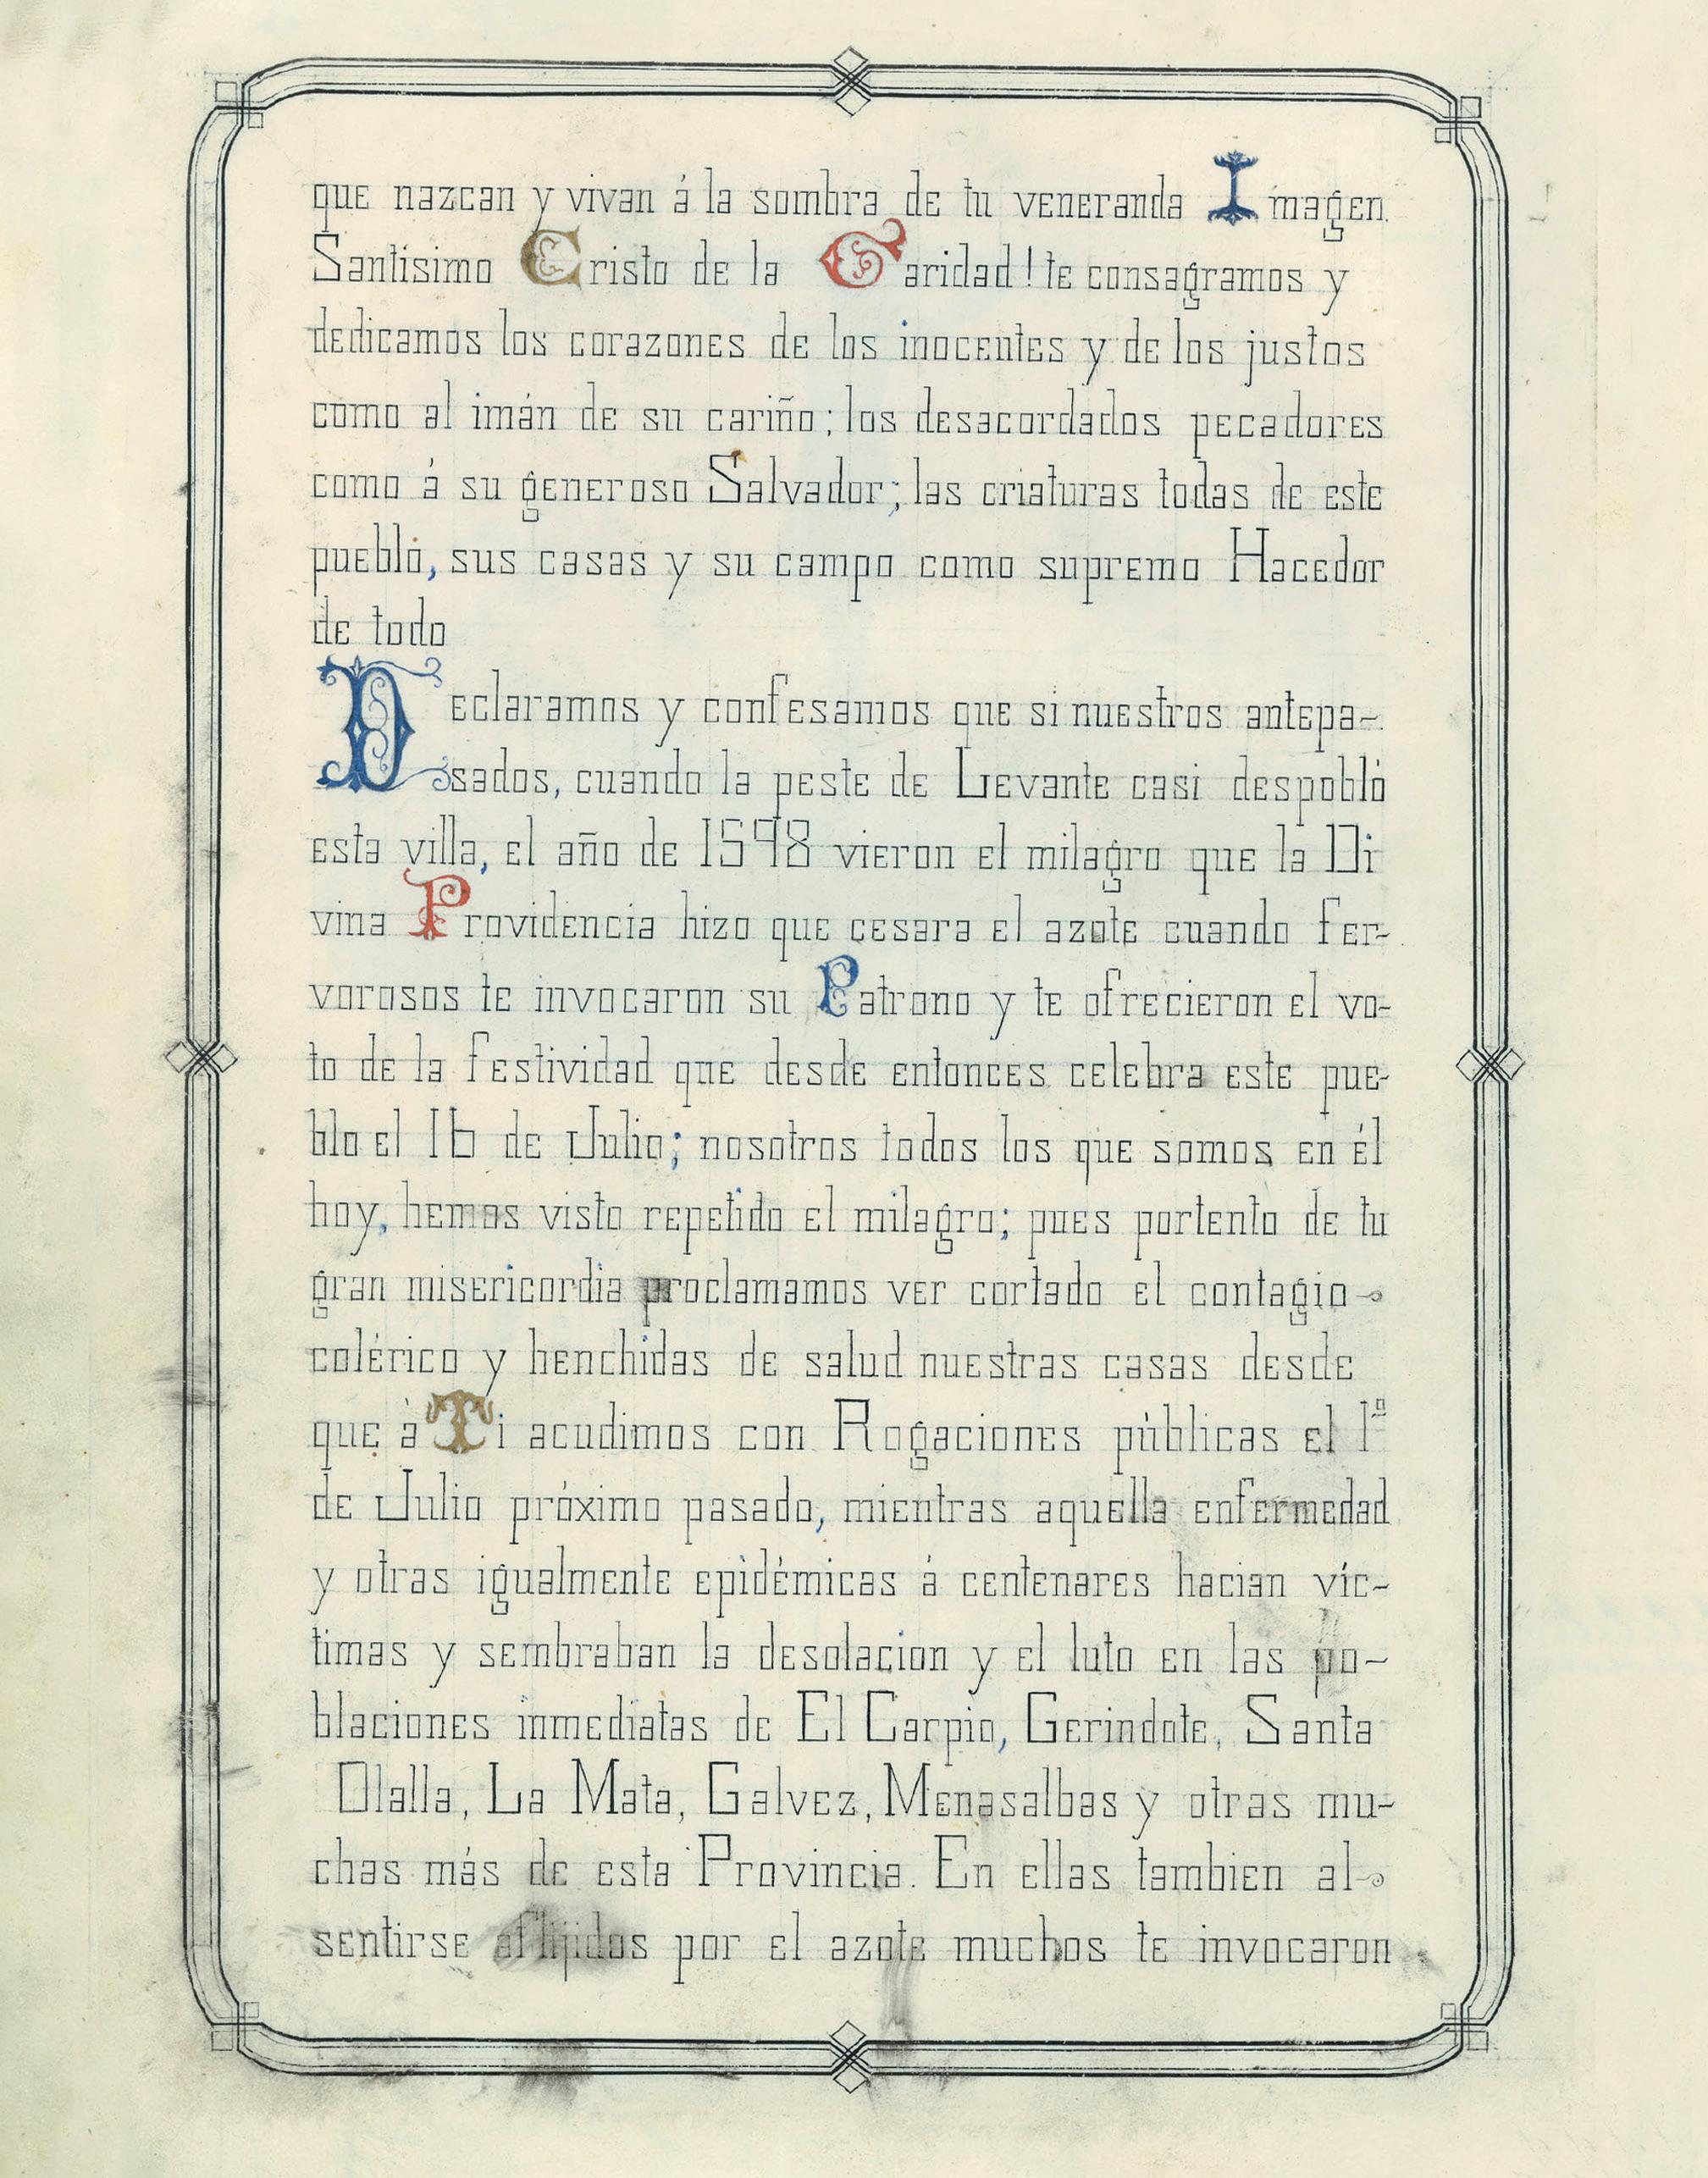 que nazcan y vivan á la sombra de tu veneranda Imagen.
Santísimo Cristo de la Caridad! te consagramos y
dedicamos los corazones de los inocentes y de los justos
como al imán de su cariño; los desacordados pecadores
como á su generoso Salvador; las criaturas todas de este
pueblo, sus casas y su campo como supremo Hacedor
de todo
Declaramos y confesamos que si nuestros antepa-
sados, cuando la peste de Levante casi despobló
esta villa, el año de 1598 vieron el milagro que la Di
vina Providencia hizo que cesara el azote cuando fer-
vorosos te invocaron su Patrono y te ofrecieron el vo-
to de la festividad que desde entonces celebra este pue-
blo el 16 de Julio; nosotros todos los que somos en él
hoy, hemos visto repetido el milagro; pues portento de tu
gran misericordia proclamamos ver cortado el contagio
colérico y henchidas de salud nuestras casas desde
que à Ti acudimos con Rogaciones públicas el 1º
de Julio próximo pasado, mientras aquella enfermedad
y otras igualmente epidémicas á centenares hacian víc-
timas y sembraban la desolacion y el luto en las po-
blaciones inmediatas de El Carpio, Gerindote, Santa
Olalla, La Mata, Galvez, Menasalbas y otras mu-
chas más de esta Provincia. En ellas tambien al
sentirse aflijidos por el azote muchos te invocaron